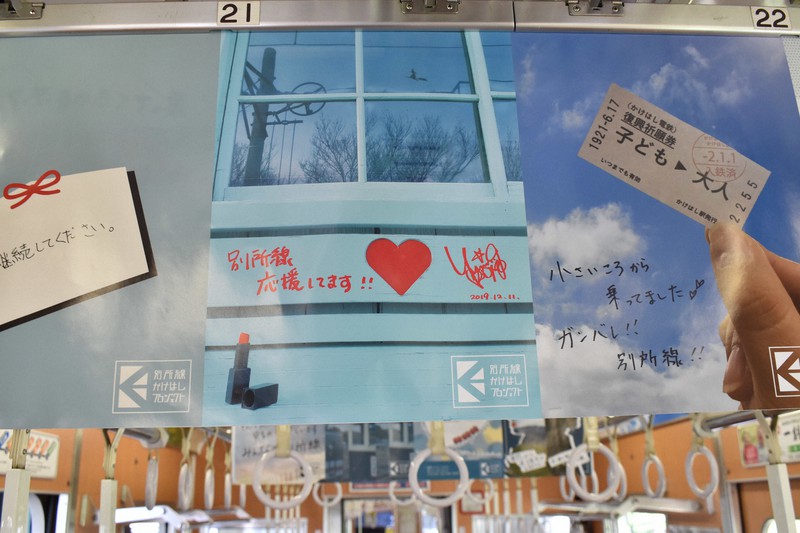 21
22
継続してください。
別所線
かけはし
プロジェクト
別所線
応援してます!!
2019.12.11.
別所線
かけはし
プロジェクト
1921-6.17
(かけはし電鉄)
復興祈願券
子ども▶大人
-2.1.1
入鉄済
いつまでも有効
かけはし駅発行
2255
小さいころから
乗ってました
ガンバレ!!
別所線!!